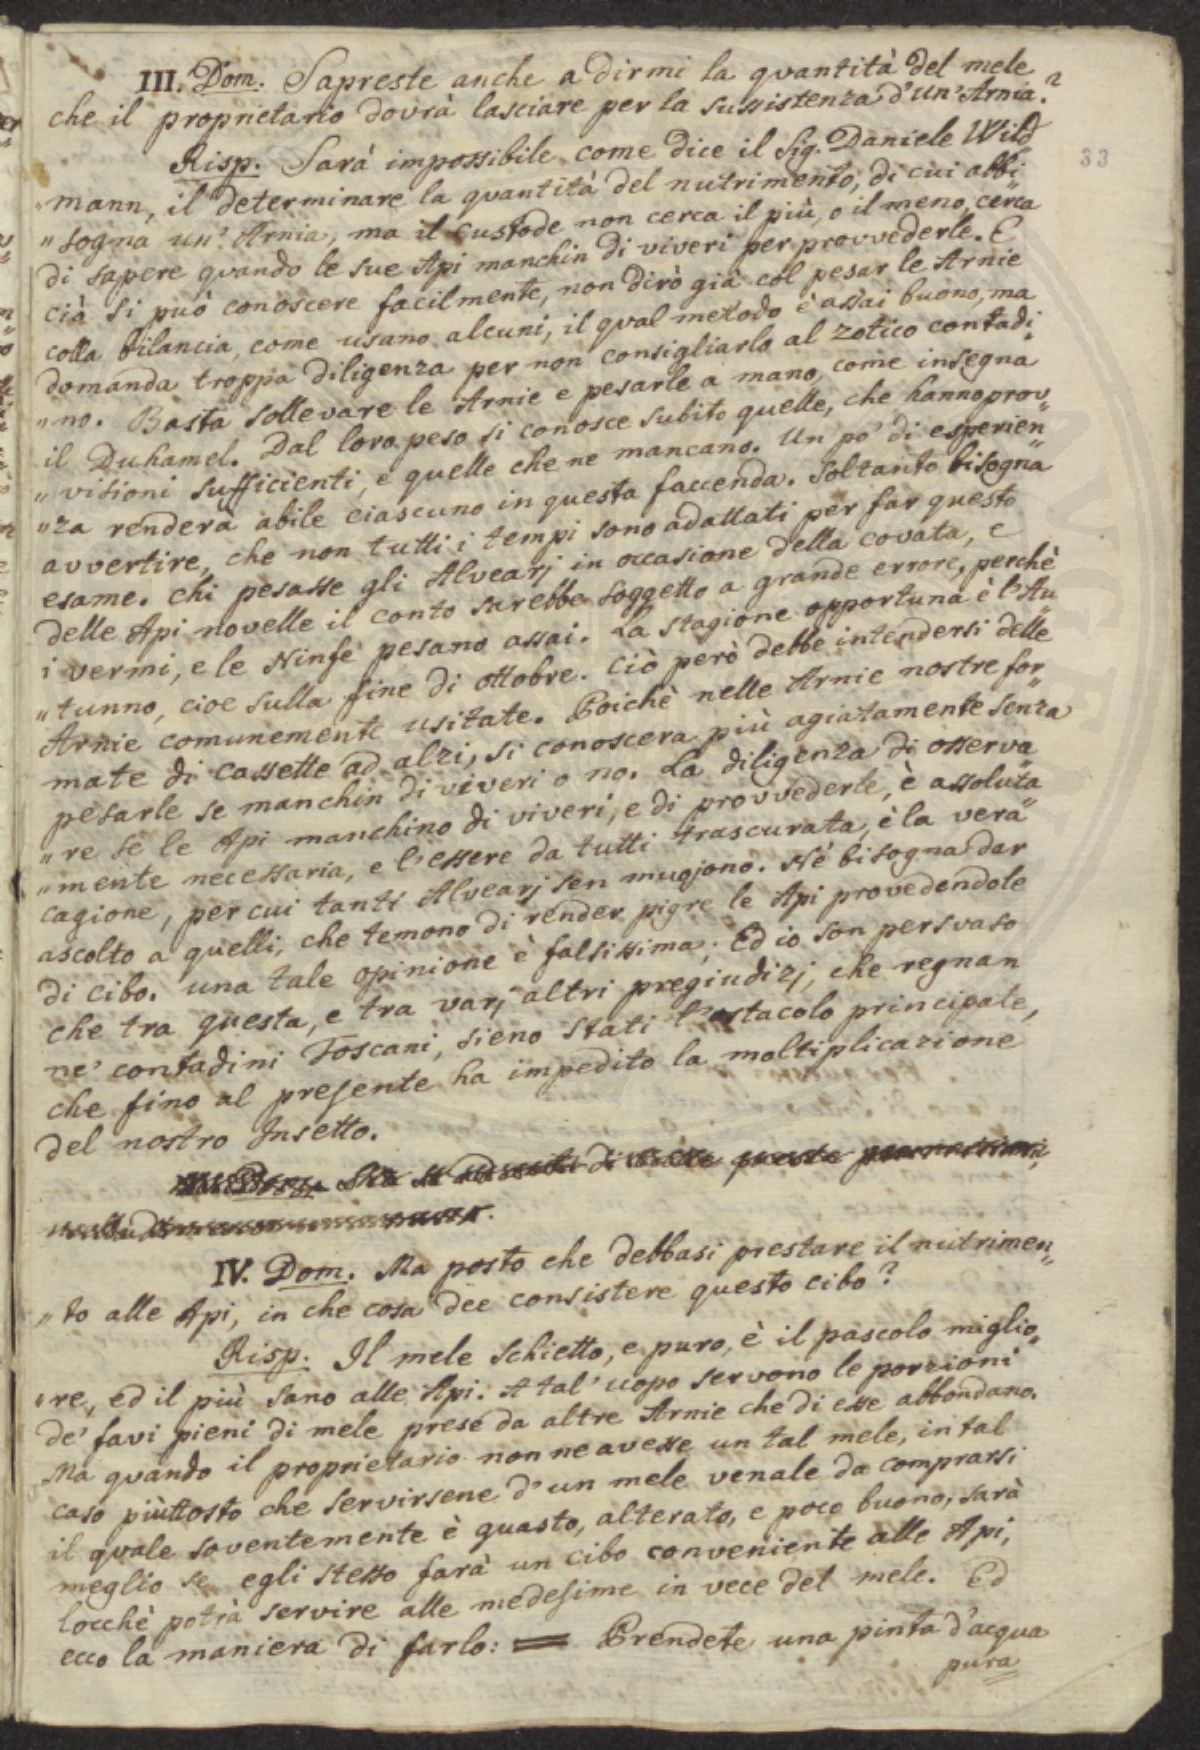 III. Dom. Sapreste anche a dirmi la quantità del mele
che il proprietario dovrà lasciare per la sussistenza d'un'Arnia?
33
Risp. Sarà impossibile come dice il Sig. Daniele Wild„
mann, il determinare la quantità del nutrimento, di cui abbi„
„sogna un'Arnia, ma il custode non cerca il più, o il meno, cerca
di sapere quando le sue Api manchin di viveri per provvederle. E
ciò si può conoscere facilmente, non dirò già col pesar le Arnie
colla bilancia, come usano alcuni, il qual metodo è assai buono, ma
domanda troppa diligenza per non consigliarlo al zotico contadi„
„no. Basta sollevare le Arnie e pesarle a mano, come insegna
il Duhamel. Dal loro peso si conosce subito quelle, che hanno prov„
„visioni sufficienti, e quelle che ne mancano. Un pò di esperien„
„za renderà abile ciascuno in questa faccenda. Soltanto bisogna
avvertire, che non tutti i tempi sono adattati per far questo
esame. Chi pesasse gli Alvearj in occasione della covata, e
delle Api novelle il conto sarebbe soggetto a grande errore, perchè
i vermi, e le Ninfe pesano assai. La stagione opportuna è l'Au„
„tunno, cioe sulla fine di ottobre. Ciò però debbe intendersi delle
Arnie comunemente usitate. Poichè nelle Arnie nostre for„
mate di cassette ad alzi, si conoscera più agiatamente senza
pesarle se manchin di viveri o no. La diligenza di osserva„
„re se le Api manchino di viveri, e di provvederle, è assoluta„
„mente necessaria, e l'essere da tutti trascurata, è la vera
cagione, per cui tanti Alvearj sen muojono. Nè bisogna dar
ascolto a quelli, che temono di render pigre le Api provedendole
di cibo. una tale opinione è falsissima; Ed io son persvaso
che tra questa, e tra varj altri pregiudizj, che regnan
ne' contadini Toscani, sieno stati l'ostacolo principale,
che fino al presente ha impedito la moltiplicazione
del nostro Insetto.
IV. Dom. Ma posto che debbasi prestare il nutrimen„
„to alle Api, in che cosa dee consistere questo cibo?
Risp. Il mele schietto, e puro, è il pascolo miglio„
„re, ed il più sano alle Api. A tal' uopo servono le porzioni
de' favi pieni di mele prese da altre Arnie che di esse abbondano.
Ma quando il proprietario non ne avesse un tal mele, in tal
caso piùttosto che servirsene d'un mele venale da comprarsi
il quale soventemente è guasto, alterato, e poco buono, sarà
meglio se egli stesso farà un cibo conveniente alle Api,
locchè potrà servire alle medesime in vece del mele. Ed
ecco la maniera di farlo: = Prendete una pinta d'acqua
pura